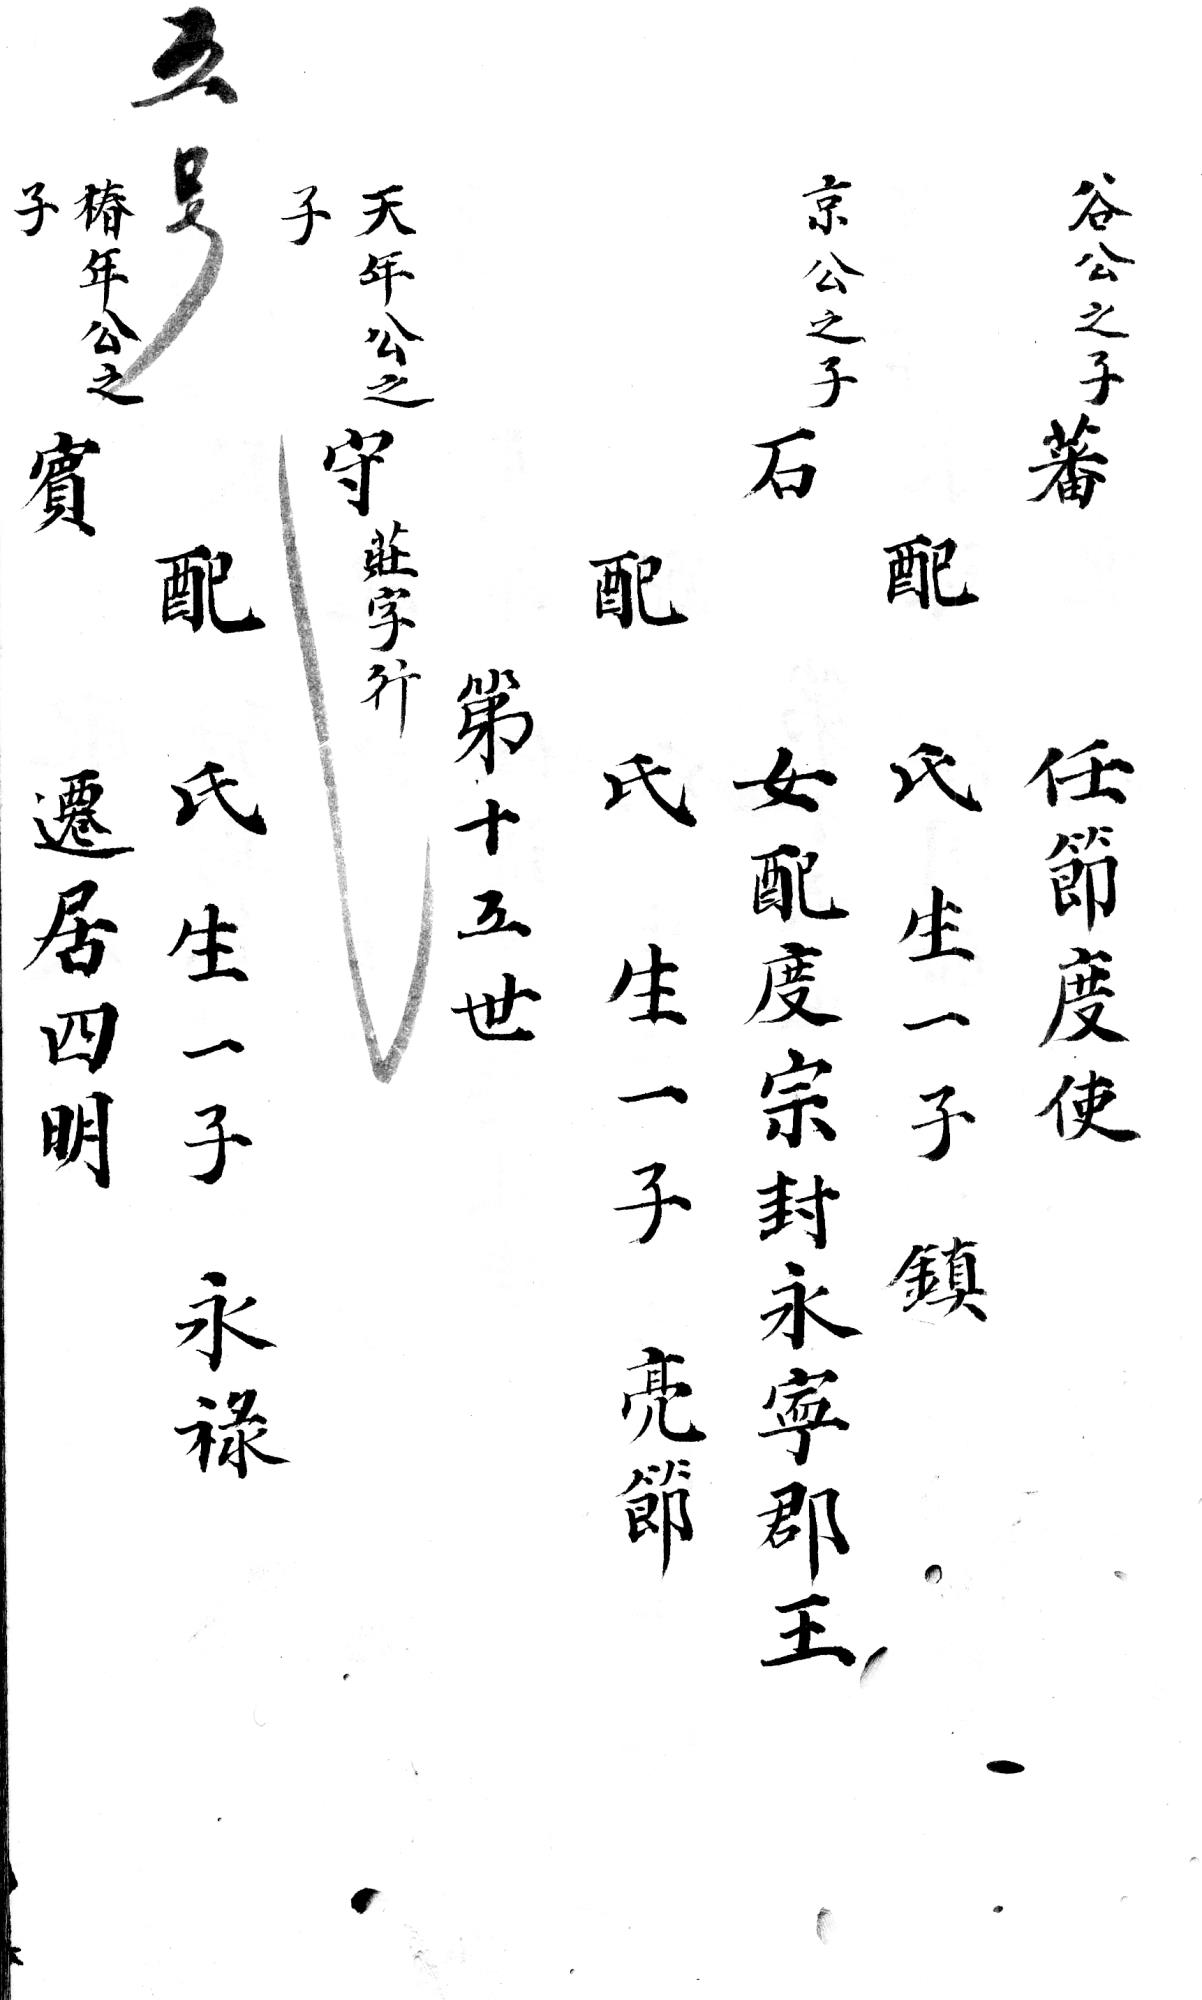 谷公之子
蕃 任節度使
配 氏生一子 鎮
京公之子
石 女配度宗封永寧郡王
配 氏 生一子 亮節
第十五世
天年公之
子
守 莊字行
配 氏 生一子 永祿
五号
椿年公之
子
賓 遷居四明